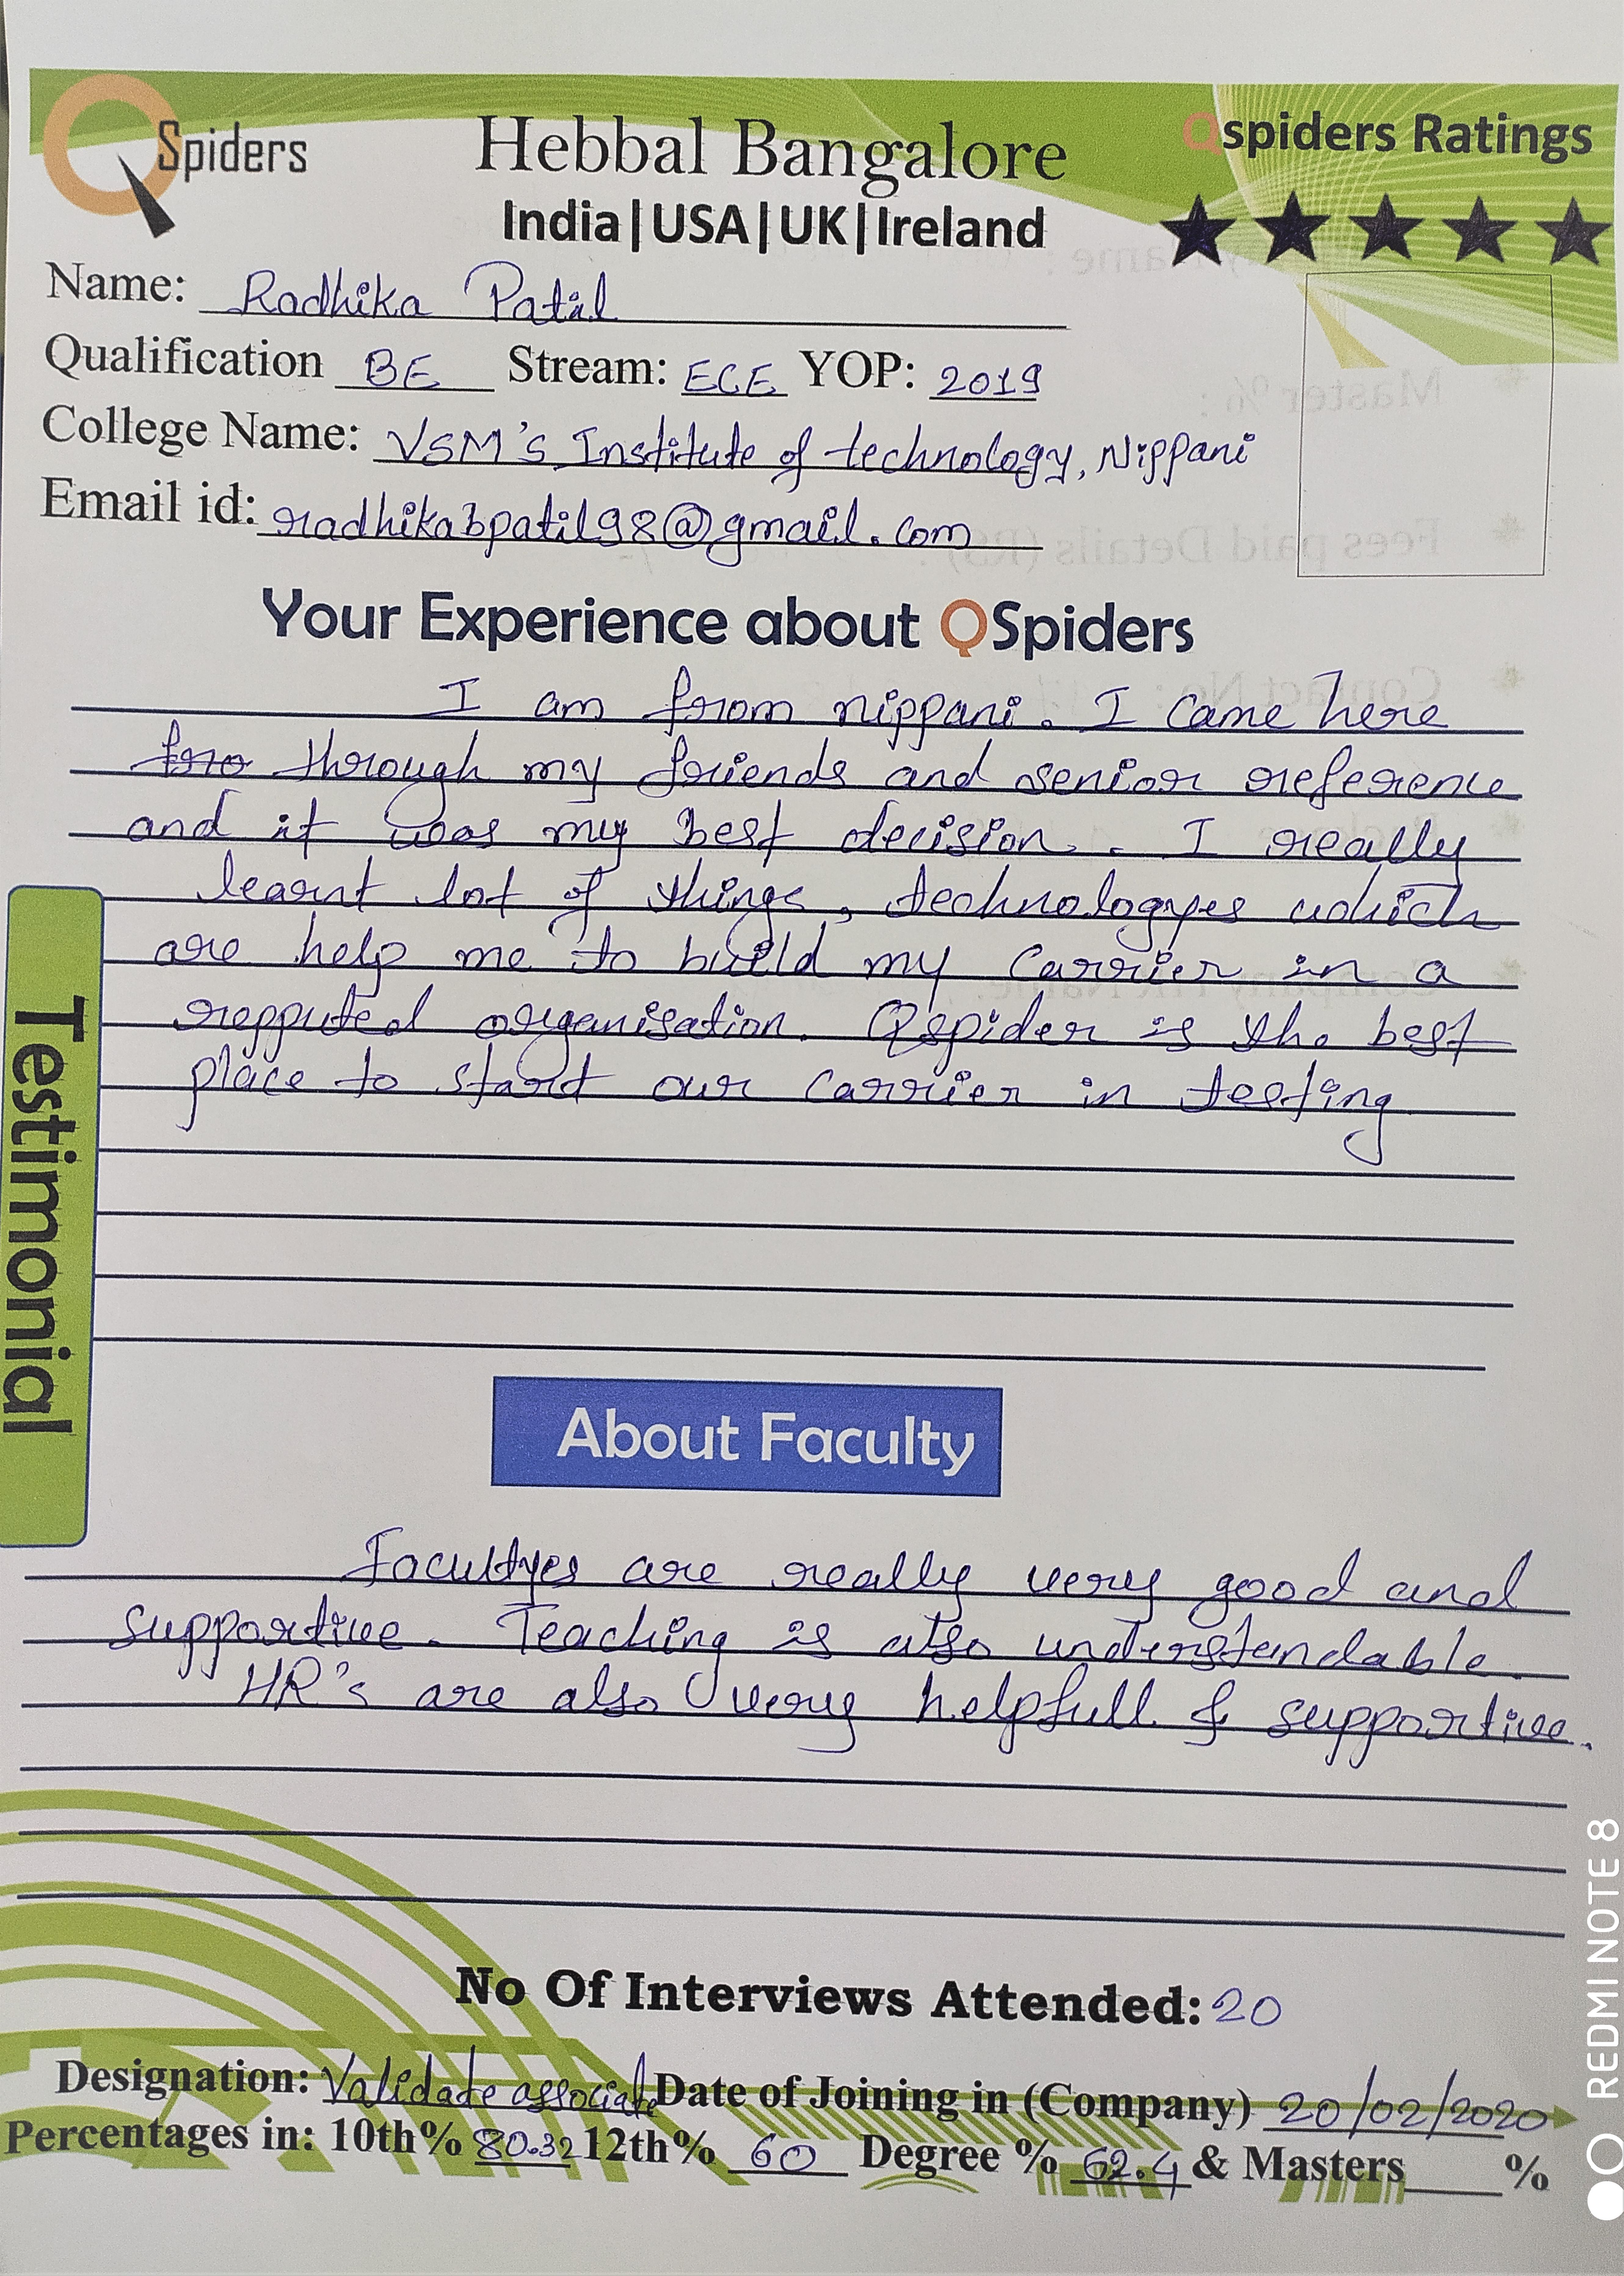 QSpiders
Hebbal Bangalore
India|USA|UK|Ireland
Qspiders Ratings
Name: Radhika Patil
Qualification BE Stream: ECE YOP: 2019
College Name: VSM's Institute of technology, Nippani
Email id: radhikabpatil98@gmail.com
Your Experience about QSpiders
I am from nippani. I came here
fro through my friends and senior reference
and it was my best decision. I really
learnt lot of things, technologyes which
are help me to build my carrier in a
repputed organisation. Qspider is the best
place to start our carrier in testing
Testimonial
About Faculty
Facultyes are really very good and
supportive. Teaching is also understandable.
HR's are also very helpfull & supportive.
No Of Interviews Attended: 20
Designation: Validate associate Date of Joining in (Company) 20/02/2020
Percentages in: 10th% 80.32 12th% 60 Degree % 62.4 & Masters %
REDMI NOTE 8
Master % :
Fees paid Details (RS) :
Contact No :